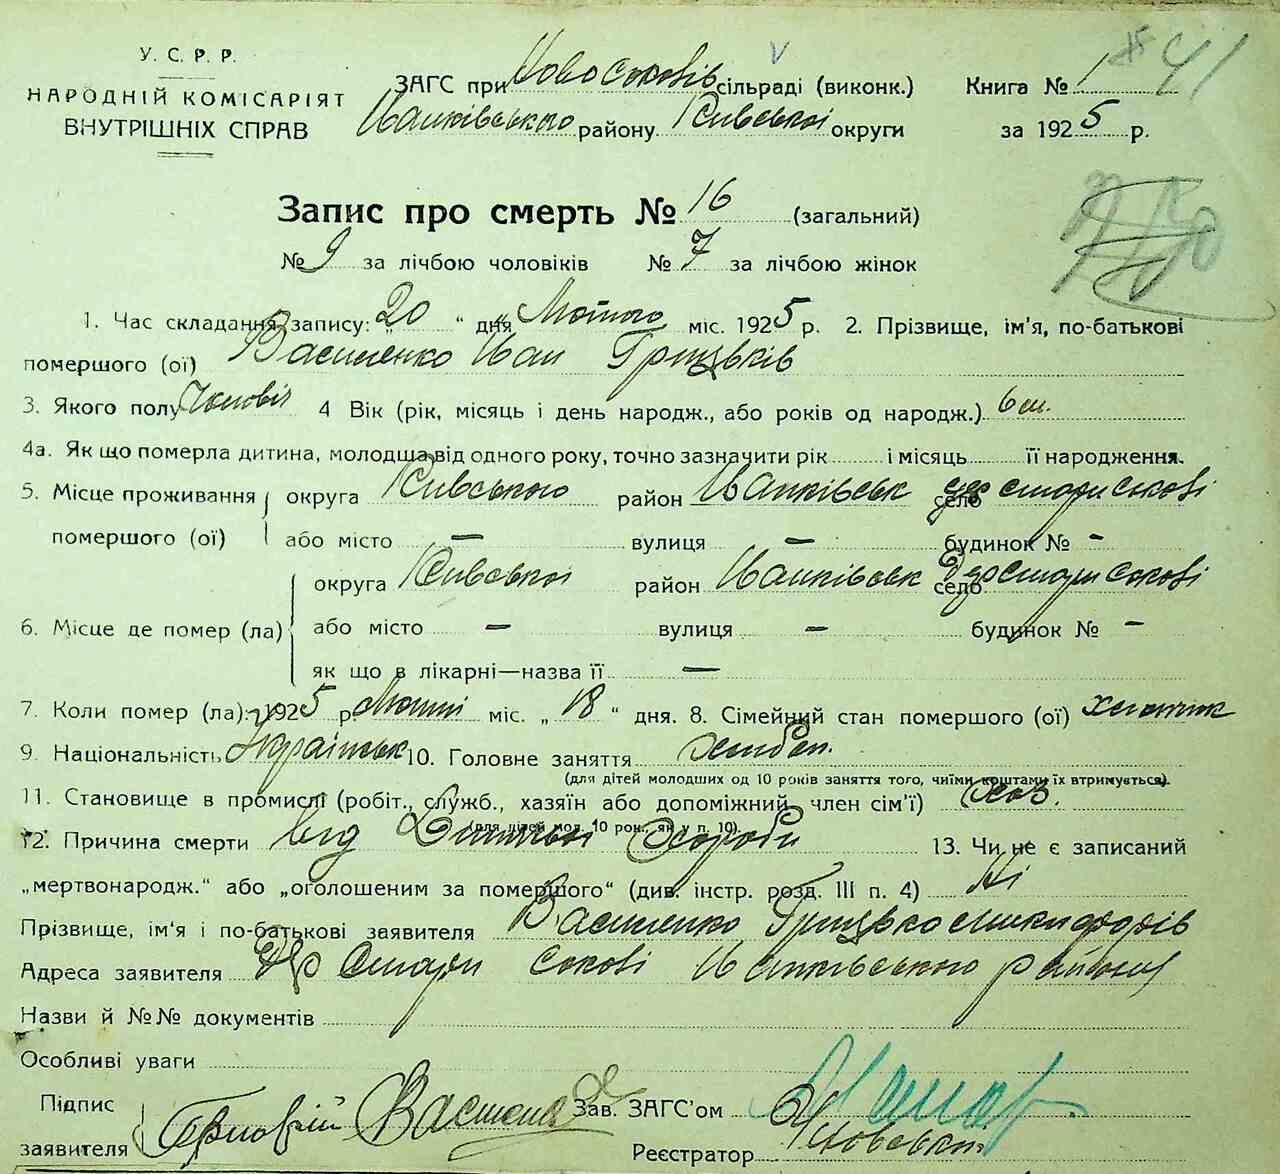 У. С. Р. Р.
НАРОДНІЙ КОМІСАРІЯТ
ВНУТРІШНІХ СПРАВ
ЗАГС при Новосоковів сільраді (виконк.)
Иванківського району Київської округи
Книга № 1
41
за 1925 р.
Запис про смерть № 16 (загальний)
№ 9 за лічбою чоловіків № 7 за лічбою жінок
1. Час складання запису: „20“ дня Лютого міс. 1925 р. 2. Прізвище, ім'я, по-батькові
помершого (ої) Василенко Иван Грицьків
3. Якого полу Чоловіч 4 Вік (рік, місяць і день народж., або років од народж.) 6 м.
4а. Як що померла дитина, молодша від одного року, точно зазначити рік і місяць її народження.
5. Місце проживання помершого (ої) округа Київського район Иванківськ село дер Стари Сокові
або місто — вулиця — будинок № -
6. Місце де помер (ла) округа Київської район Иванківськ село дер Стари Сокові
або місто — вулиця — будинок № —
як що в лікарні—назва її —
7. Коли помер (ла): 1925 р. Лютий міс. „18“ дня. 8. Сімейний стан помершого (ої) хлопчик
9. Національність Українськ 10. Головне заняття хлібоп.
(для дітей молодших од 10 років заняття того, чиїми коштами їх втримується).
11. Становище в промислі (робіт., служб., хазяїн або допоміжний член сім'ї) хаз.
(для дітей мол. 10 рок., як у п. 10).
12. Причина смерти від Дитячої Хороби 13. Чи не є записаний
„мертвонародж.“ або „оголошеним за помершого“ (див. інстр. розд. III п. 4) Ні
Прізвище, ім'я і по-батькові заявителя Василенко Грицько Микифорів
Адреса заявителя Дер Стари Сокові Иванківського району
Назви й №№ документів
Особливі уваги
Підпис заявителя Василенко
Зав. ЗАГС'ом
Реєстратор